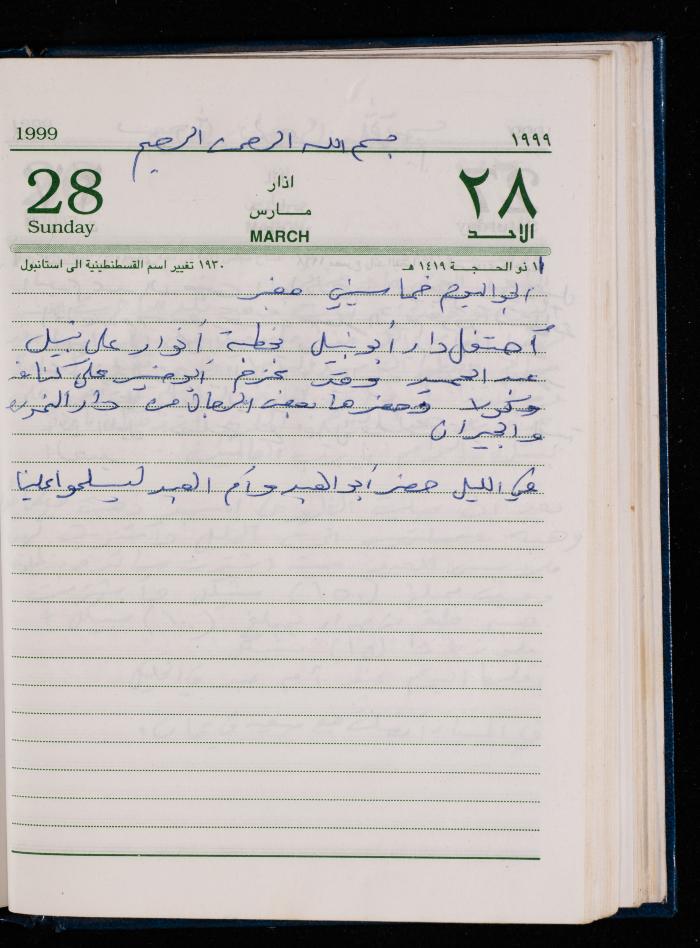 1999
١٩٩٩
بسم الله الرحمن الرحيم
28
Sunday
اذار
مارس
MARCH
٢٨
الاحد
١١ ذو الحجة ١٤١٩ هـ
١٩٣٠ تغيير اسم القسطنطينية الى استانبول
الجو اليوم خماسيني مغبر
أحتفل دار أبو نبيل بخطبة أنوار على نبيل
عبد الحميد وقد أبو على كنافة
وكولا وحضرها بعض الرجال من دار
والجيران
في الليل حضر أبو العبد وأم العبد ليسلموا علينا